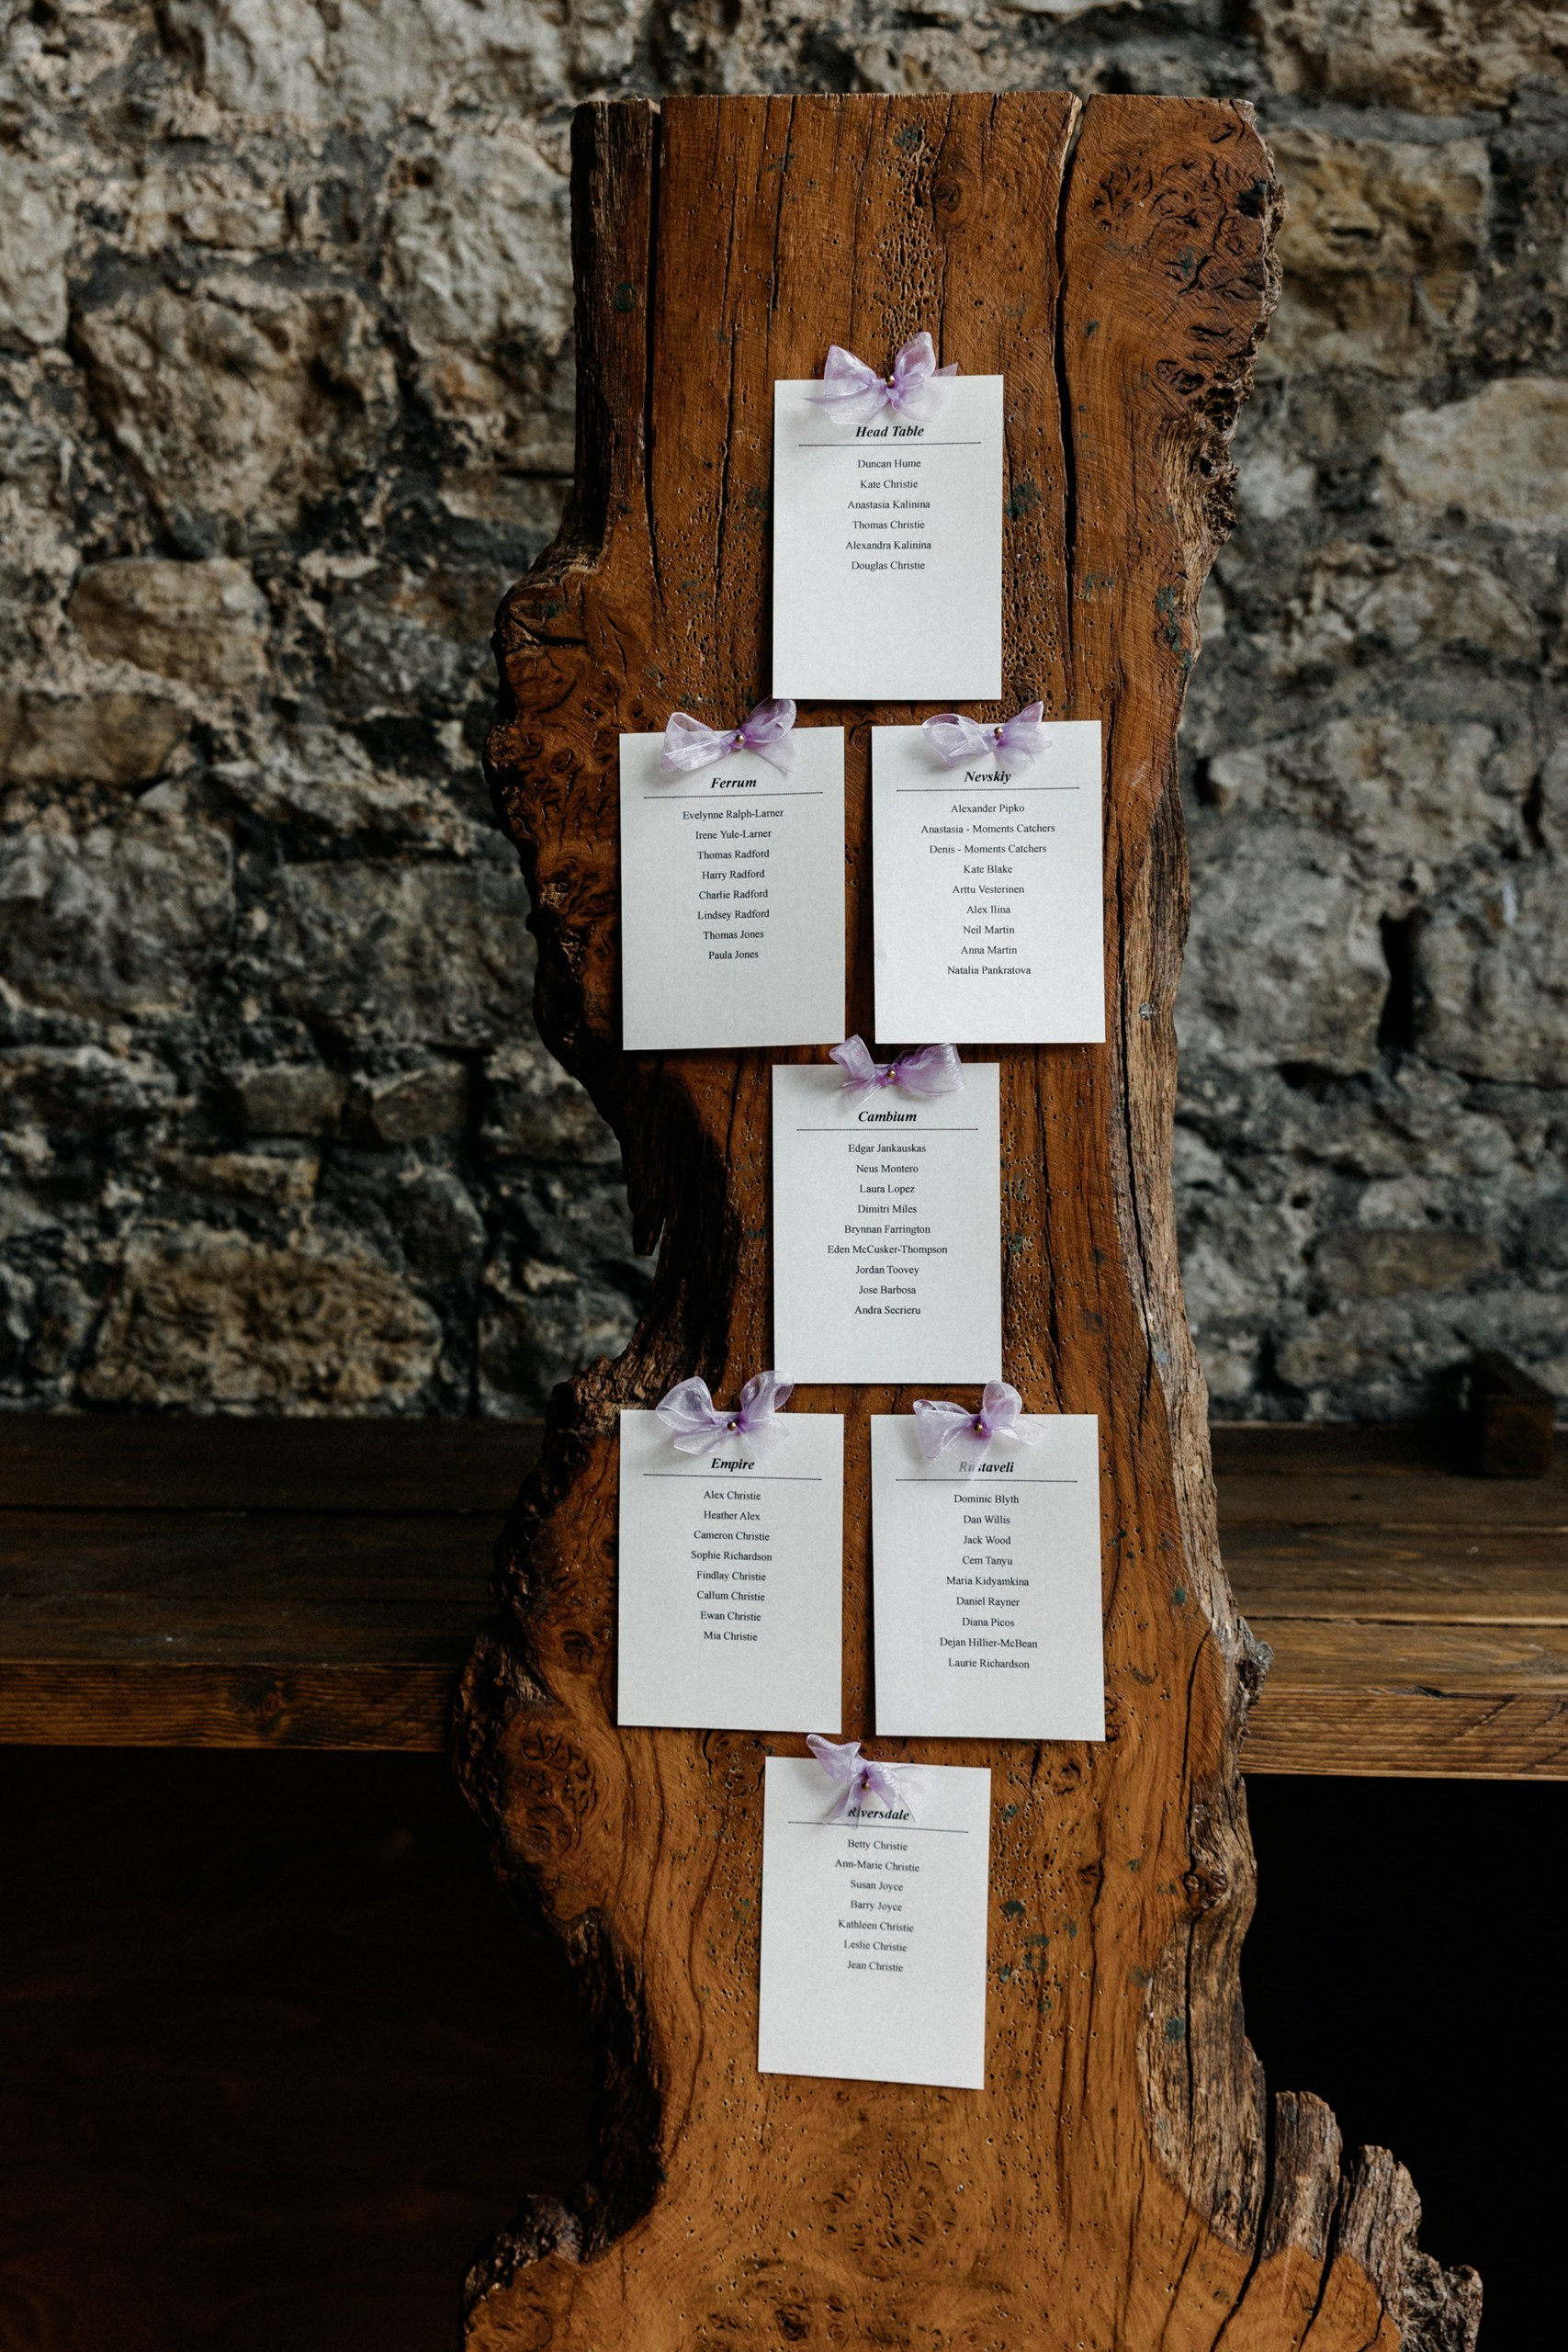 Head Table
Duncan Hume
Kate Christie
Anastasia Kalinina
Thomas Christie
Alexandra Kalinina
Douglas Christie
Ferrum
Evelynne Ralph-Larner
Irene Yule-Larner
Thomas Radford
Harry Radford
Charlie Radford
Lindsey Radford
Thomas Jones
Paula Jones
Nevskiy
Alexander Pipko
Anastasia - Moments Catchers
Denis - Moments Catchers
Kate Blake
Arttu Vesterinen
Alex Ilina
Neil Martin
Anna Martin
Natalia Pankratova
Cambium
Edgar Jankauskas
Neus Montero
Laura Lopez
Dimitri Miles
Brynnan Farrington
Eden McCusker-Thompson
Jordan Toovey
Jose Barbosa
Andra Secrieru
Empire
Alex Christie
Heather Alex
Cameron Christie
Sophie Richardson
Findlay Christie
Callum Christie
Ewan Christie
Mia Christie
Rustaveli
Dominic Blyth
Dan Willis
Jack Wood
Cem Tanyu
Maria Kidyamkina
Daniel Rayner
Diana Picos
Dejan Hillier-McBean
Laurie Richardson
Riversdale
Betty Christie
Ann-Marie Christie
Susan Joyce
Barry Joyce
Kathleen Christie
Leslie Christie
Jean Christie